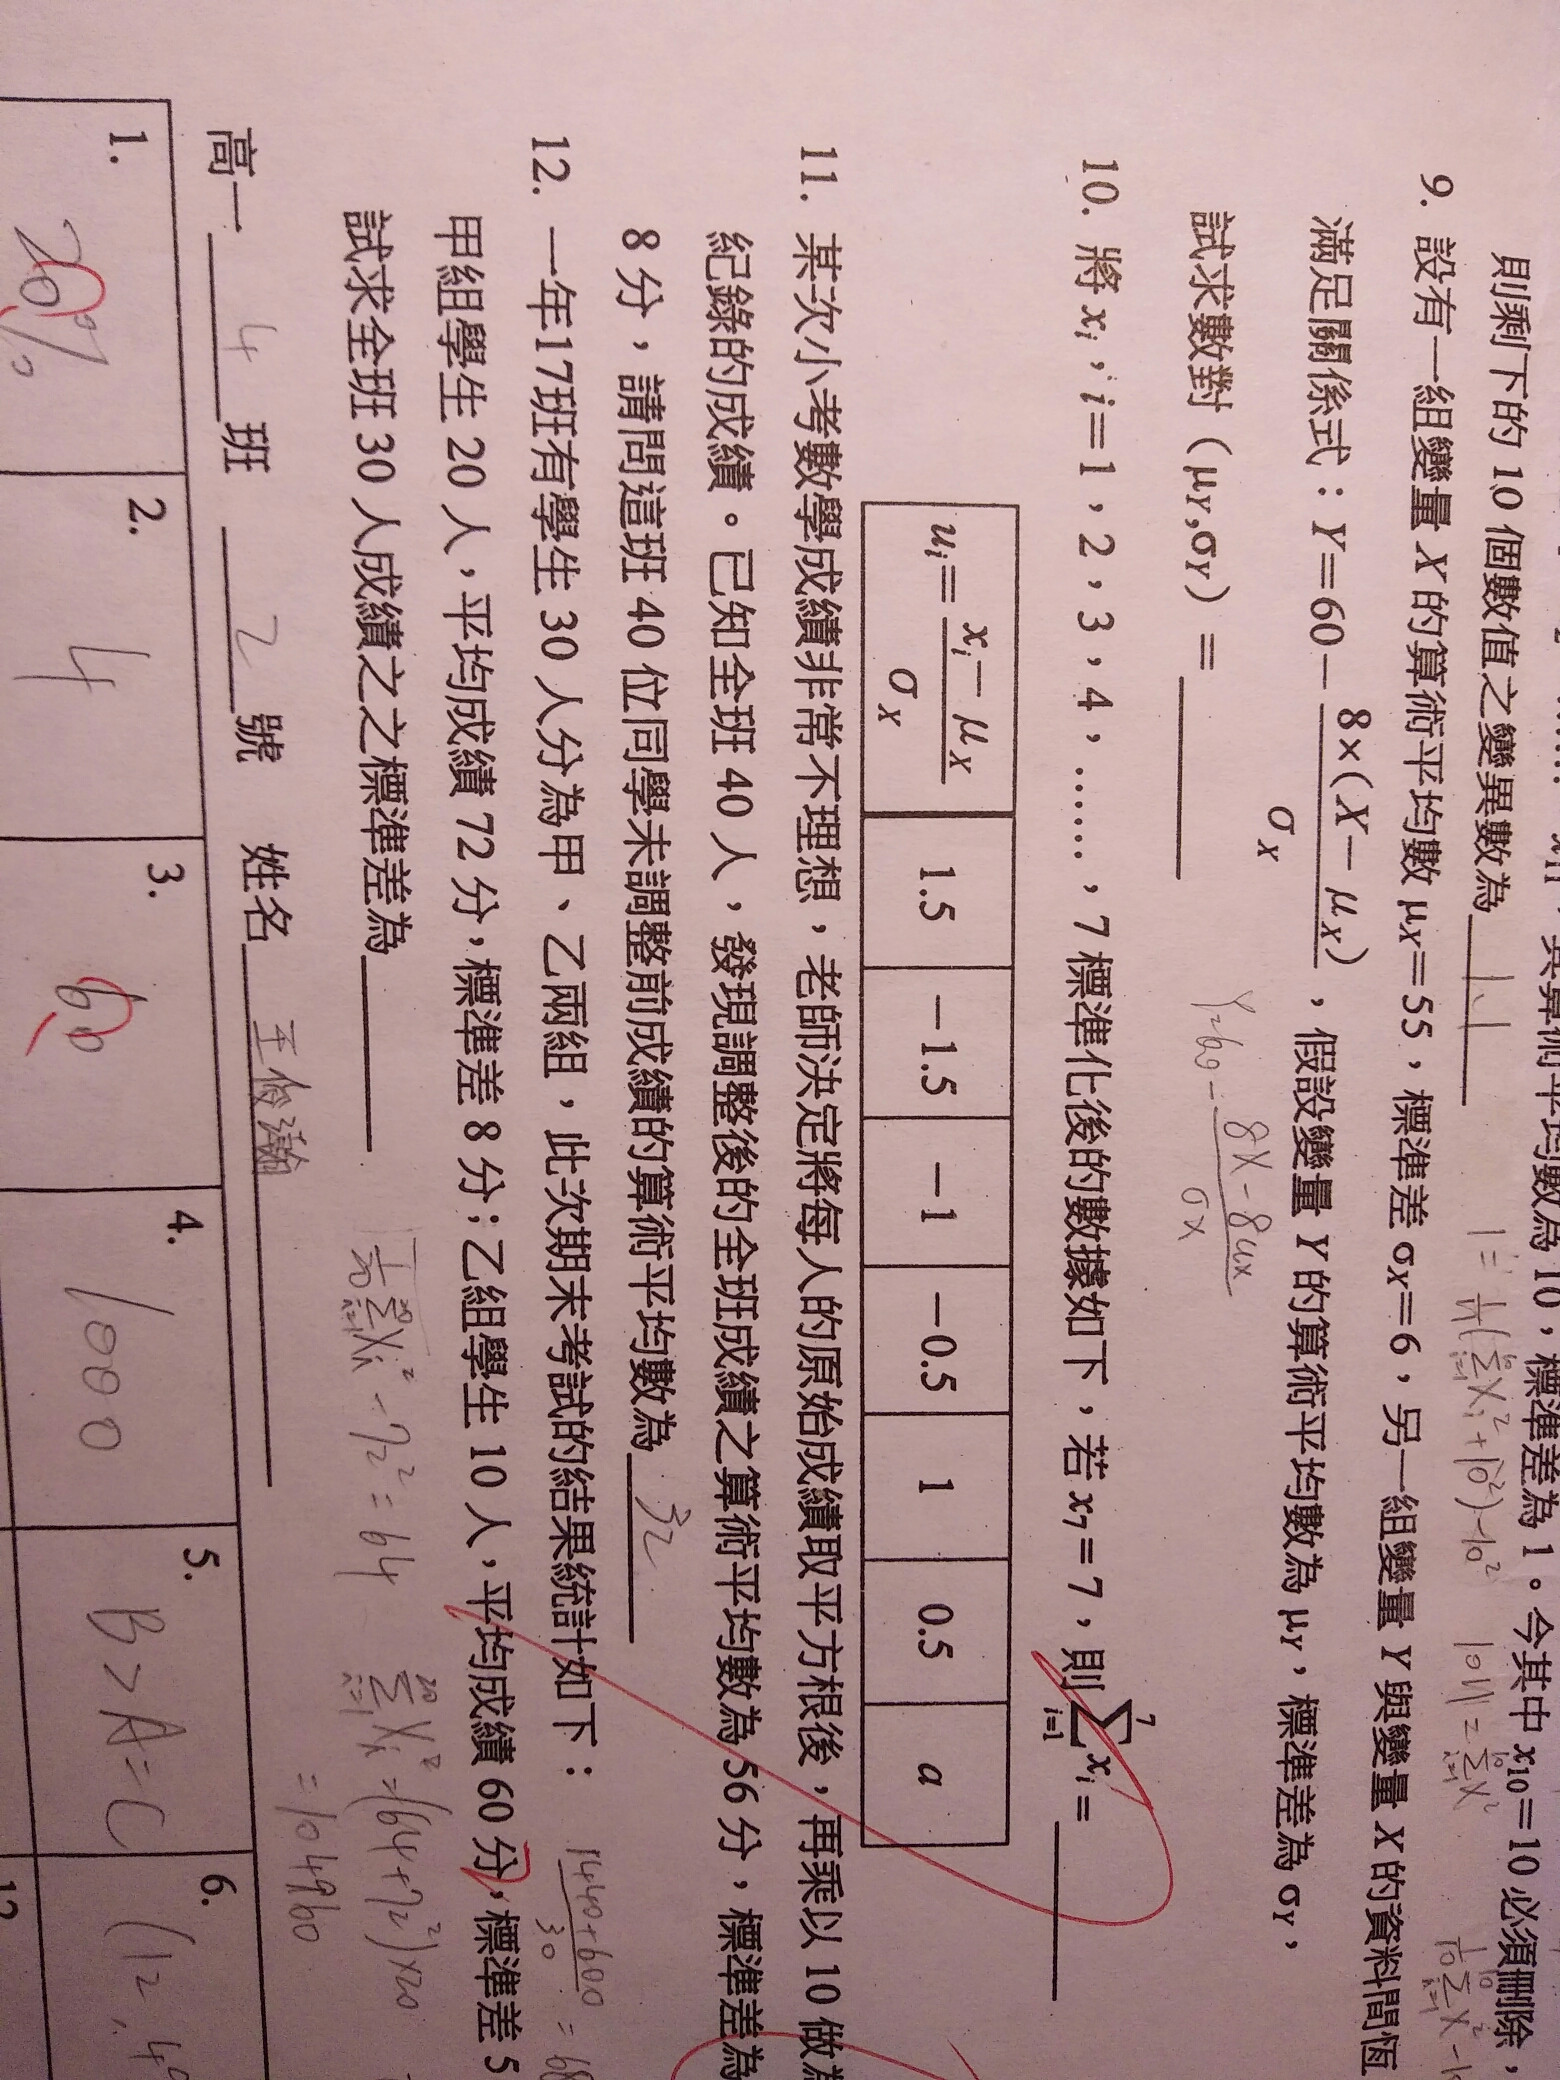 則剩下的 10 個數值之變異數為 1.1
9. 設有一組變量 X 的算術平均數 μX=55，標準差 σX=6，另一組變量 Y 與變量 X 的資料間恆
滿足關係式：Y=60－8×(X－μX)/σX，假設變量 Y 的算術平均數為 μY，標準差為 σY，
試求數對（μY,σY）＝
Y=60- 8X-8ux/σx
10. 將 xi，i=1，2，3，4，……，7 標準化後的數據如下，若 x7=7，則 7Σi=1 xi =
ui= xi－μX/σX 1.5 －1.5 －1 －0.5 1 0.5 a
11. 某次小考數學成績非常不理想，老師決定將每人的原始成績取平方根後，再乘以 10 做為
紀錄的成績。已知全班 40 人，發現調整後的全班成績之算術平均數為 56 分，標準差為
8 分，請問這班 40 位同學未調整前成績的算術平均數為 32
12. 一年17班有學生 30 人分為甲、乙兩組，此次期末考試的結果統計如下：
1440+600/30 = 68
甲組學生 20 人，平均成績 72 分，標準差 8 分；乙組學生 10 人，平均成績 60 分，標準差 5
試求全班 30 人成績之之標準差為
1/20 20Σi=1 Xi² - 72² = 64 20Σi=1 Xi² = (64+72²)×20
= 104960
高一 4 班 2 號 姓名 王
1. 20% 2. 4 3. 60 4. 1000 5. B>A=C 6.